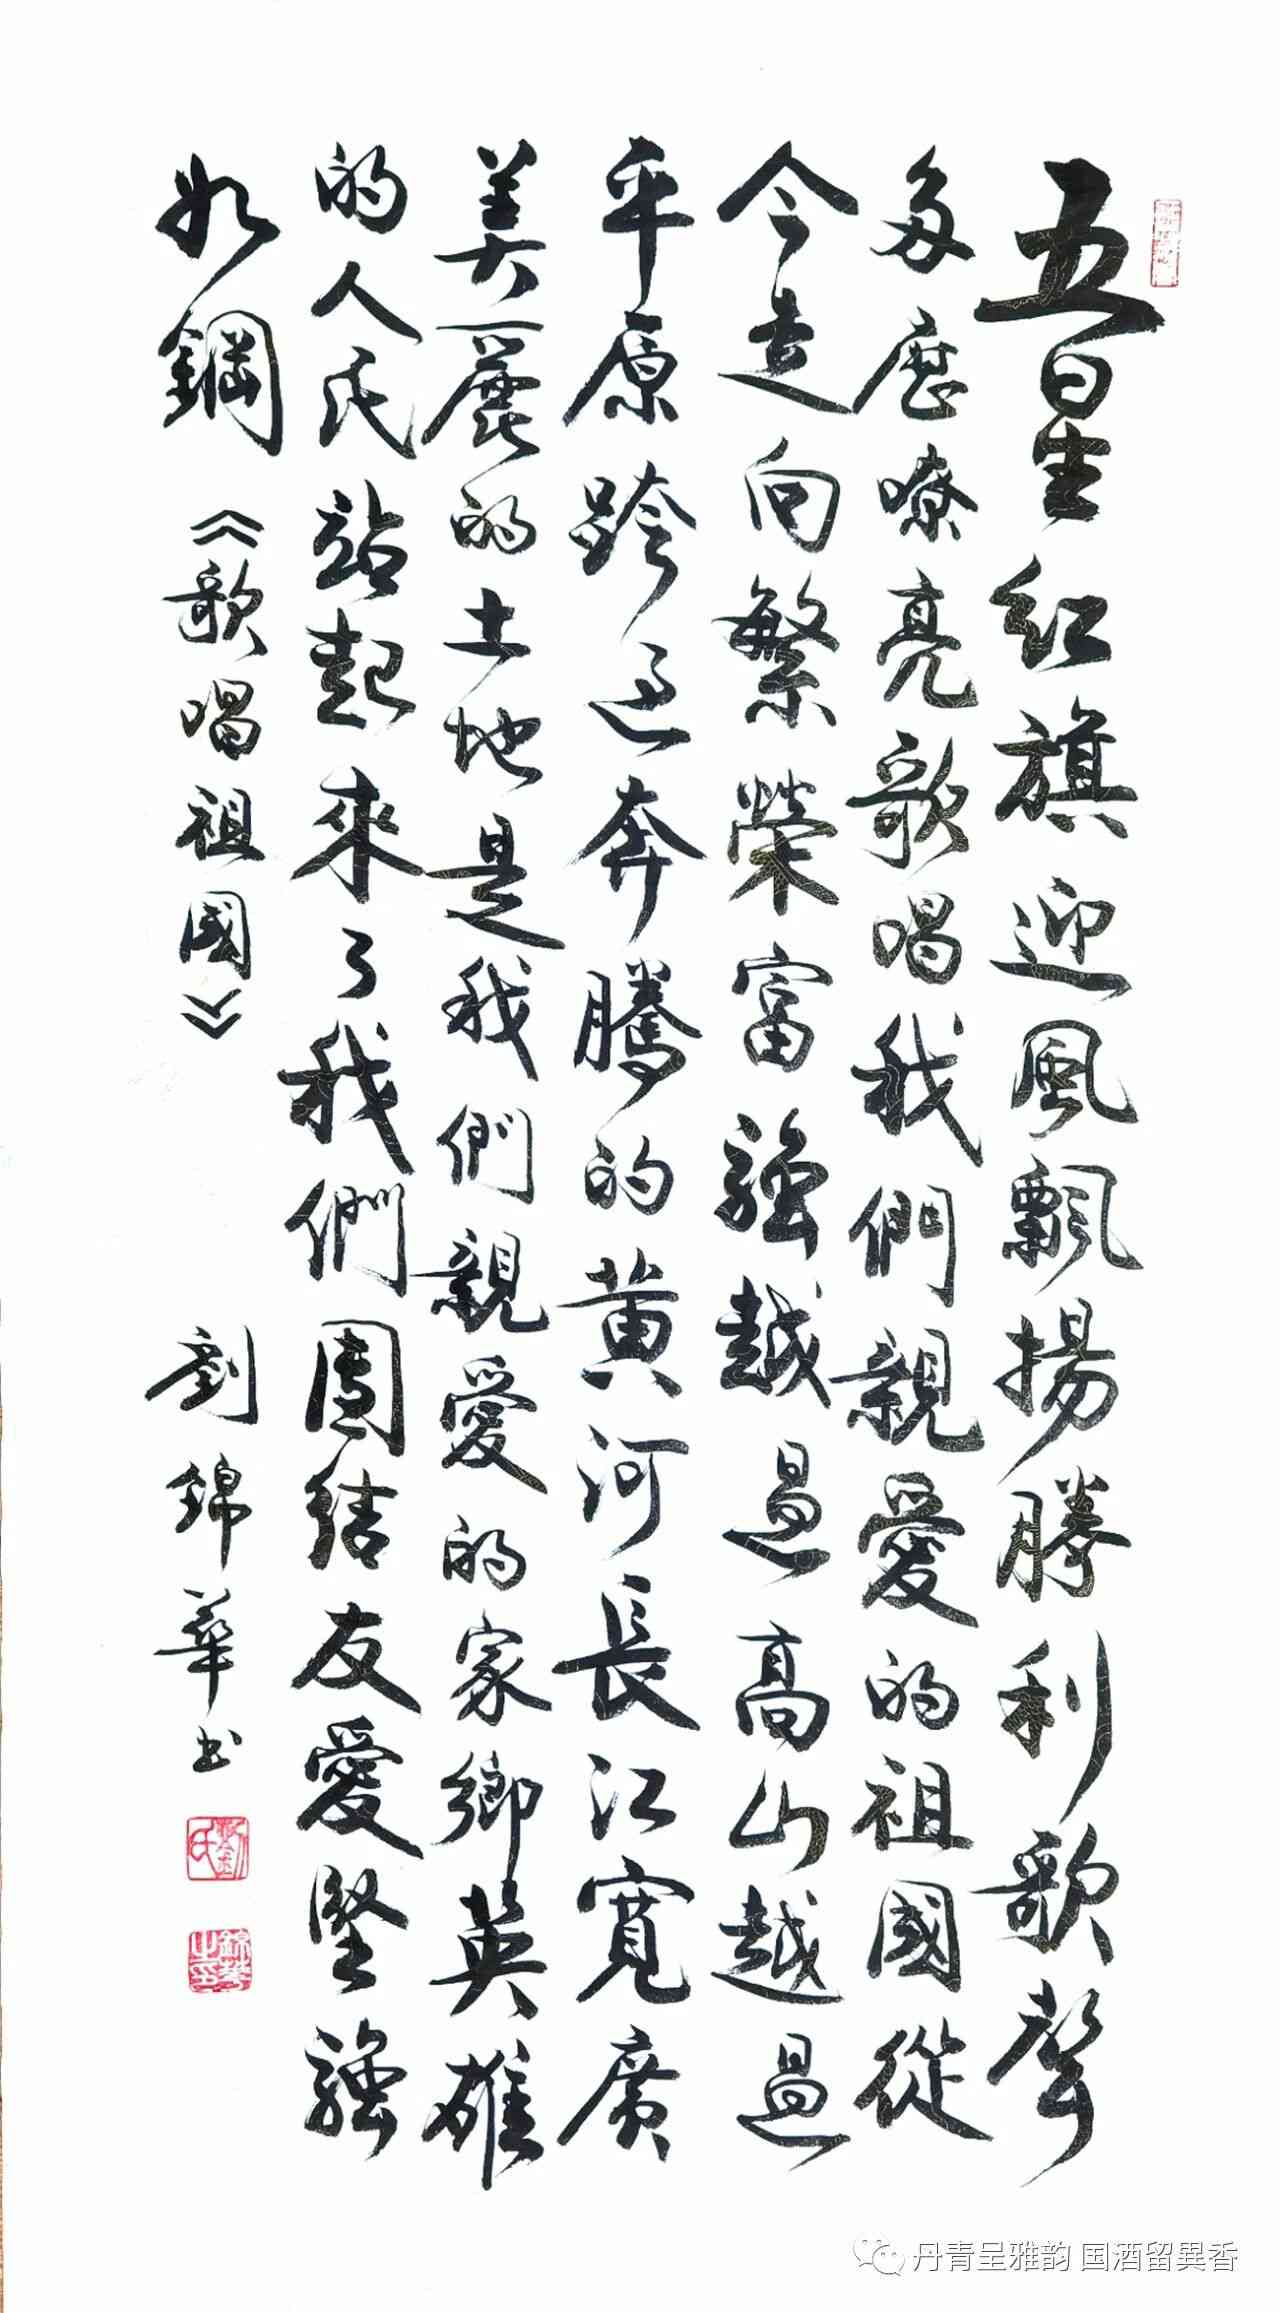 五星紅旗迎風飄揚勝利歌聲
多麽嘹亮歌唱我們親愛的祖國從
今走向繁榮富強越過高山越過
平原跨過奔騰的黄河長江寬廣
美麗的土地是我們親愛的家鄉英雄
的人民站起來了我們團結友愛堅強
如鋼《歌唱祖國》 劉錦華书
劉氏
錦華之印
丹青呈雅韵 国酒留異香